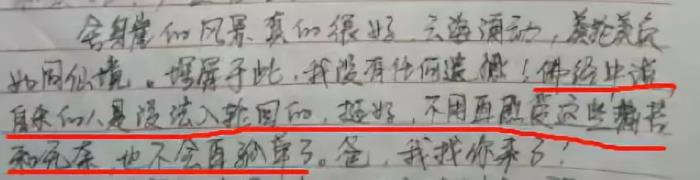 舍身崖的风景真的很好，云海涌动，美轮美奂
如同仙境。埋屏于此，我没有任何遗憾！佛经中说，
自杀的人是没法入轮回的，挺好，不用再感受这些痛苦
和无奈，也不会再孤单了。爸，我找你来了！